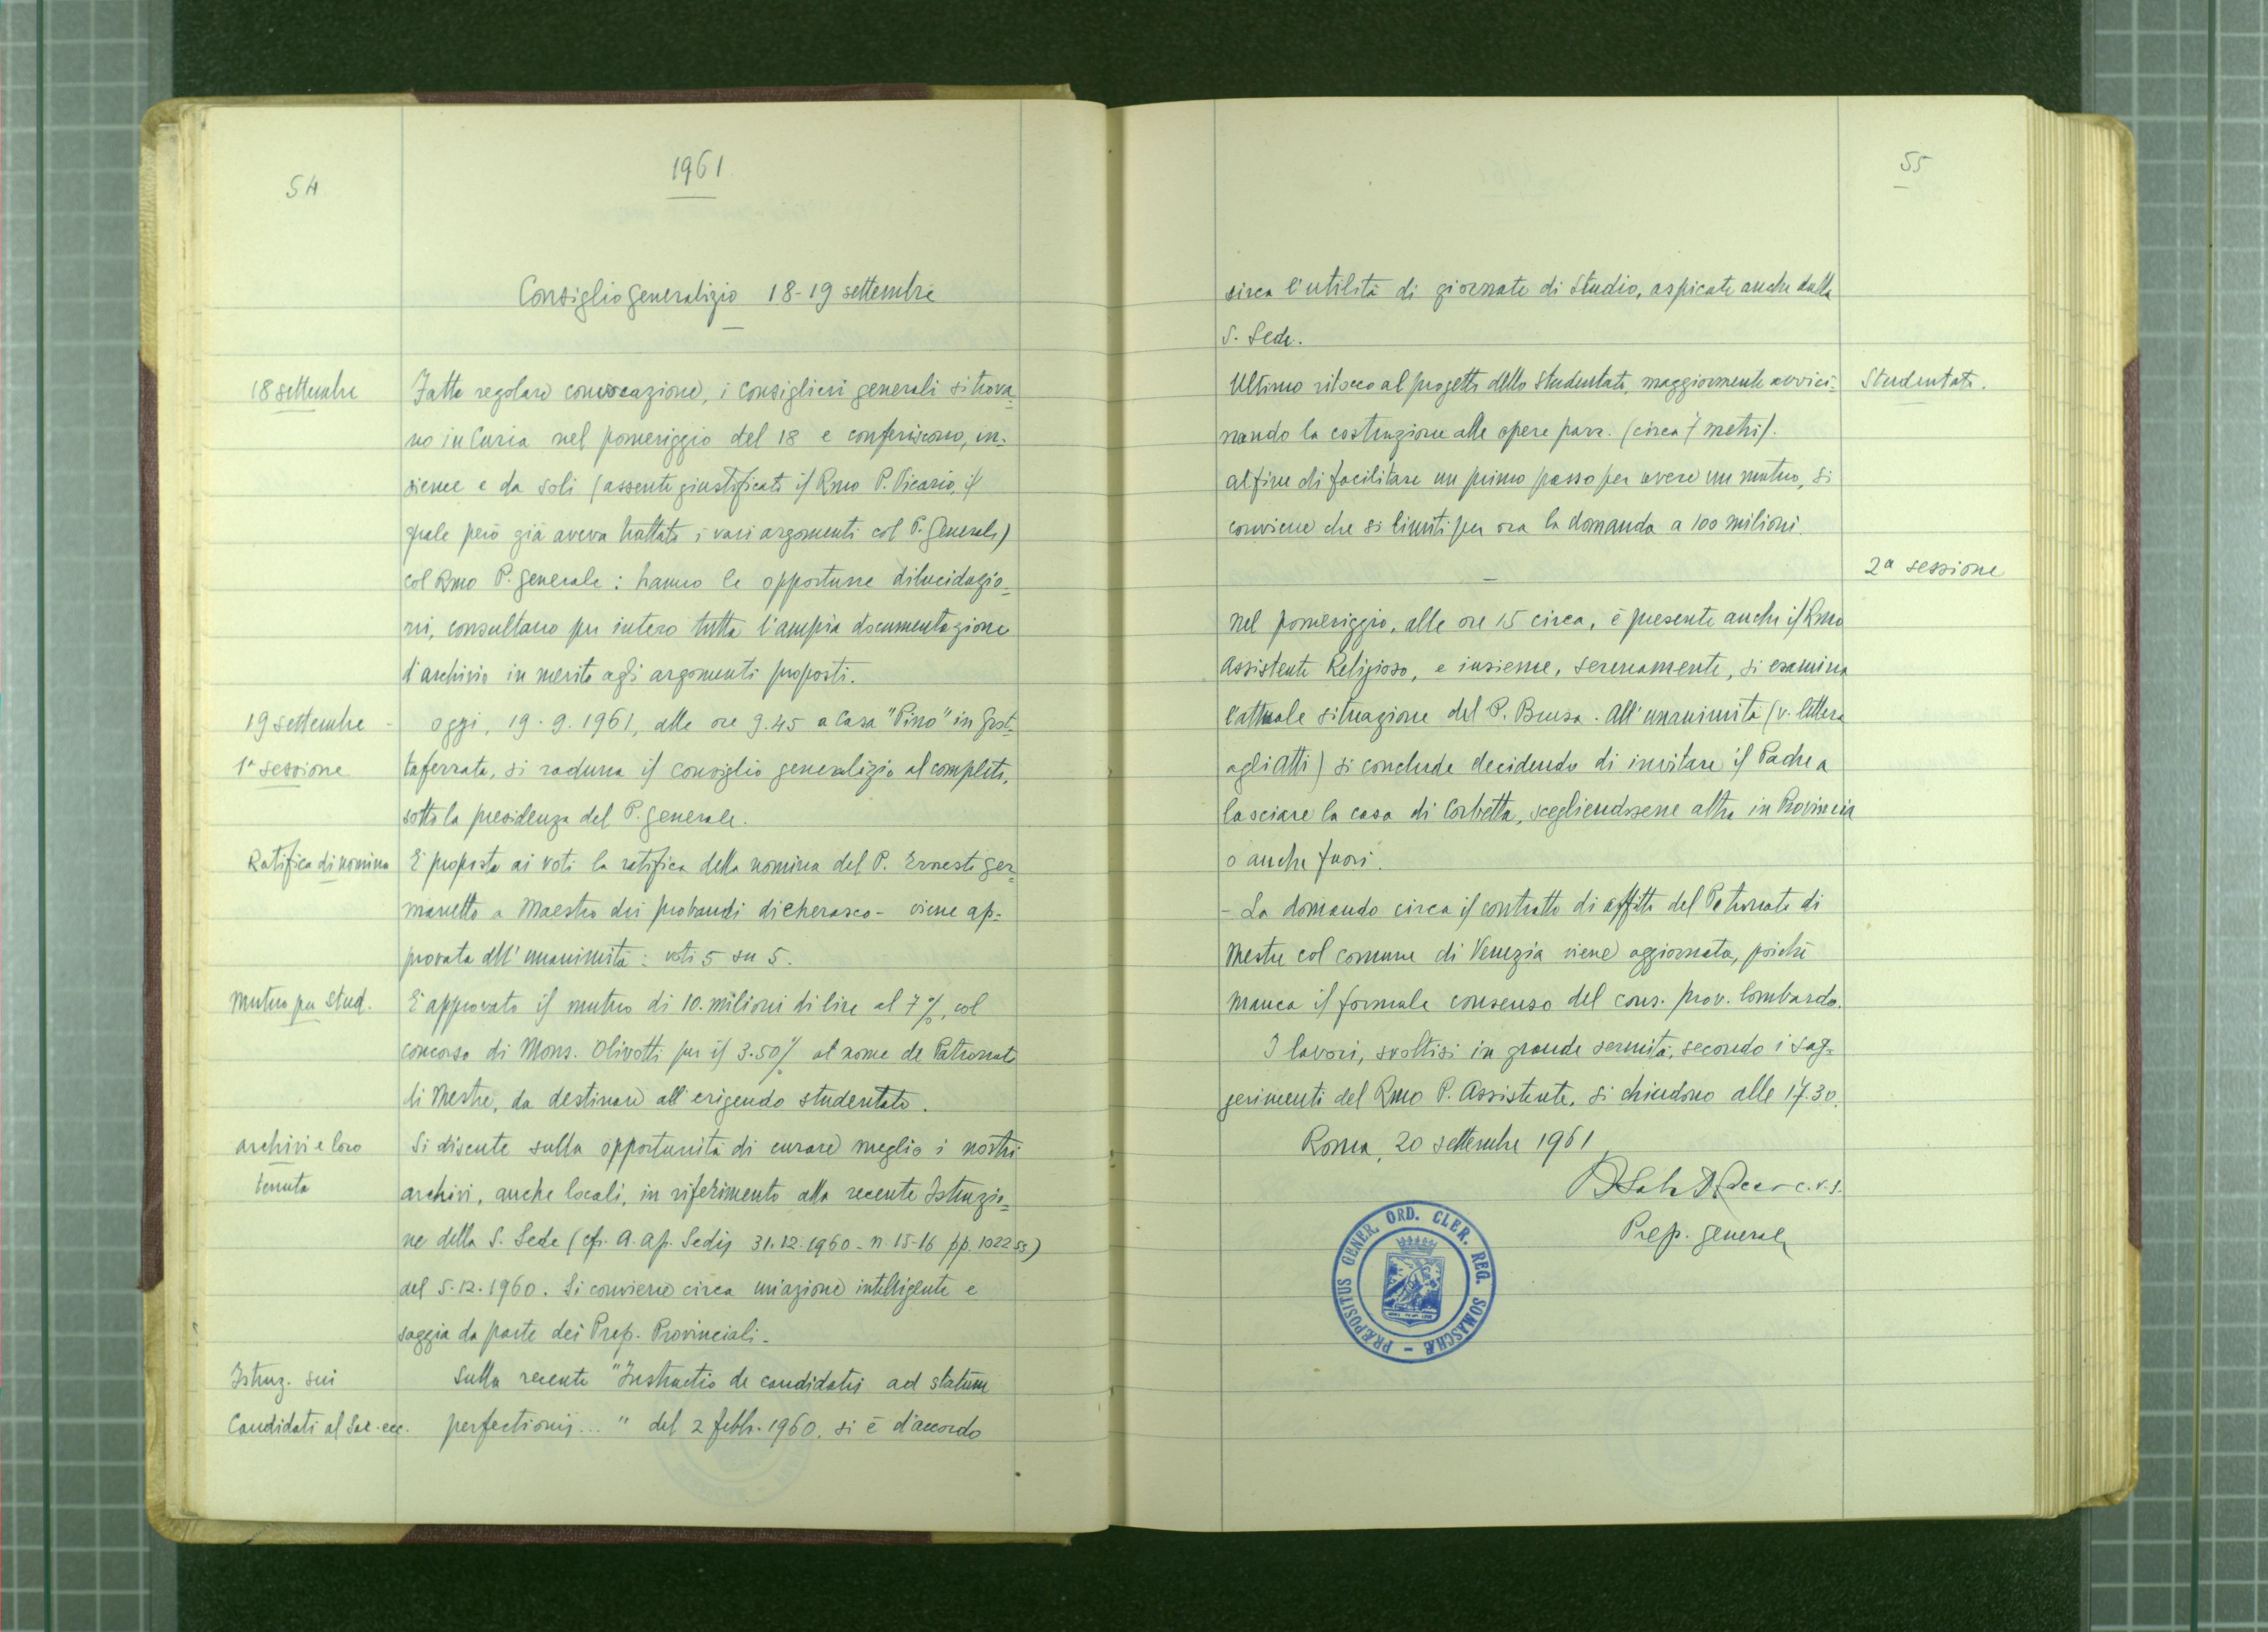 54
1961
Consiglio generalizio 18-19 settembre
18 settembre
Fatta regolare convocazione, i consiglieri generali si trova=
no in Curia nel pomeriggio del 18 e conferiscono, in-
sieme e da soli (assente giustificato il Rmo P. Vicario, il
quale però già aveva trattato i vari argomenti col P. Generale)
col Rmo P. Generale: hanno le opportune dilucidazio=
ni, consultano per intero tutta l'ampia documentazione
d'archivio in merito agli argomenti proposti.
19 settembre -
1ª sessione
Oggi, 19.9.1961, alle ore 9.45 a Casa "Pino" in Grot=
taferrata, si raduna il consiglio generalizio al completo,
sotto la presidenza del P. Generale.
Ratifica di nomina
È proposta ai voti la ratifica della nomina del P. Ernesto Ger=
manetto a Maestro dei probandi di Cherasco - viene ap-
provata all'unanimità: voti 5 su 5.
Mutuo per Stud.
È approvato il mutuo di 10 milioni di lire al 7%, col
concorso di Mons. Olivotti per il 3.50% al nome de Patronato
di Mestre, da destinare all'erigendo studentato.
Archivi e loro
tenuta
Si discute sulla opportunità di curare meglio i nostri
archivi, anche locali, in riferimento alla recente Istruzio=
ne della S. Sede (cfr. A. Ap. Sedis 31.12.1960 - n 15-16 pp. 1022 ss)
del 5.12.1960. Si conviene circa un'azione intelligente e
saggia da parte dei Prep. Provinciali.
Istruz. sui
Candidati al Sac. ecc.
Sulla recente "Instructio de candidatis ad statum
perfectionis..." del 2 febbr. 1960, si è d'accordo
55
circa l'utilità di giornate di Studio, aspicate anche dalla
S. Sede.
Studentato.
Ultimo ritocco al progetto dello Studentato, maggiormente avvici=
nando la costruzione alle opere parr. (circa 7 metri).
Al fine di facilitare un primo passo per avere un mutuo, si
conviene che si limiti per ora la domanda a 100 milioni.
2ª sessione
Nel pomeriggio, alle ore 15 circa, è presente anche il Rmo
Assistente Religioso, e insieme, serenamente, si esamina
l'attuale situazione del P. Brusa. All'unanimità (v. lettera
agli Atti) si conclude decidendo di invitare il Padre a
lasciare la casa di Corbetta, scegliendosene altra in Provincia
o anche fuori.
- La domanda circa il contratto di affitto del Patronato di
Mestre col comune di Venezia viene aggiornata, poichè
manca il formale consenso del cons. prov. lombardo.
I lavori, svoltisi in grande serenità, secondo i sug=
gerimenti del Rmo P. Assistente, si chiudono alle 17.30.
Roma, 20 settembre 1961
c.r.s.
Prep. Generale
PRÆPOSITUS GENER. ORD. CLER. REG. SOMASCHÆ -